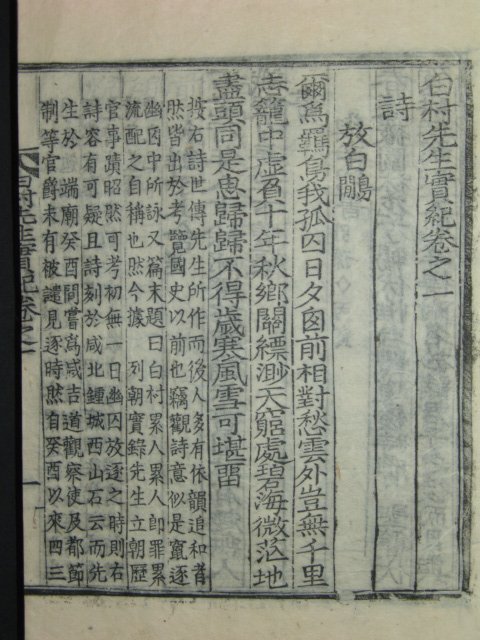 白村先生實紀卷之一
詩
放白鷴
爾爲羈鳥我孤囚日夕囱前相對愁雲外豈無千里
志籠中虛負十年秋鄕關縹渺天窮處碧海微茫地
盡頭同是思歸歸不得歲寒風雪可堪畱
按右詩世傳先生所作而後人多有依韻追和者
然皆出於考覽國史以前也竊觀詩意似是竄逐
幽囚中所詠又篇末題曰白村累人累人卽罪累
流配之自稱也然今據 列朝實錄先生立朝歷
官事蹟昭然可考初無一日幽囚放逐之時則右
詩容有可疑且詩刻於咸北鍾城西山石云而先
生於 端廟癸酉間嘗爲咸吉道觀察使及都節
制等官爵未有被譴見逐時然自癸酉以來四三
白村先生實紀卷之一
一